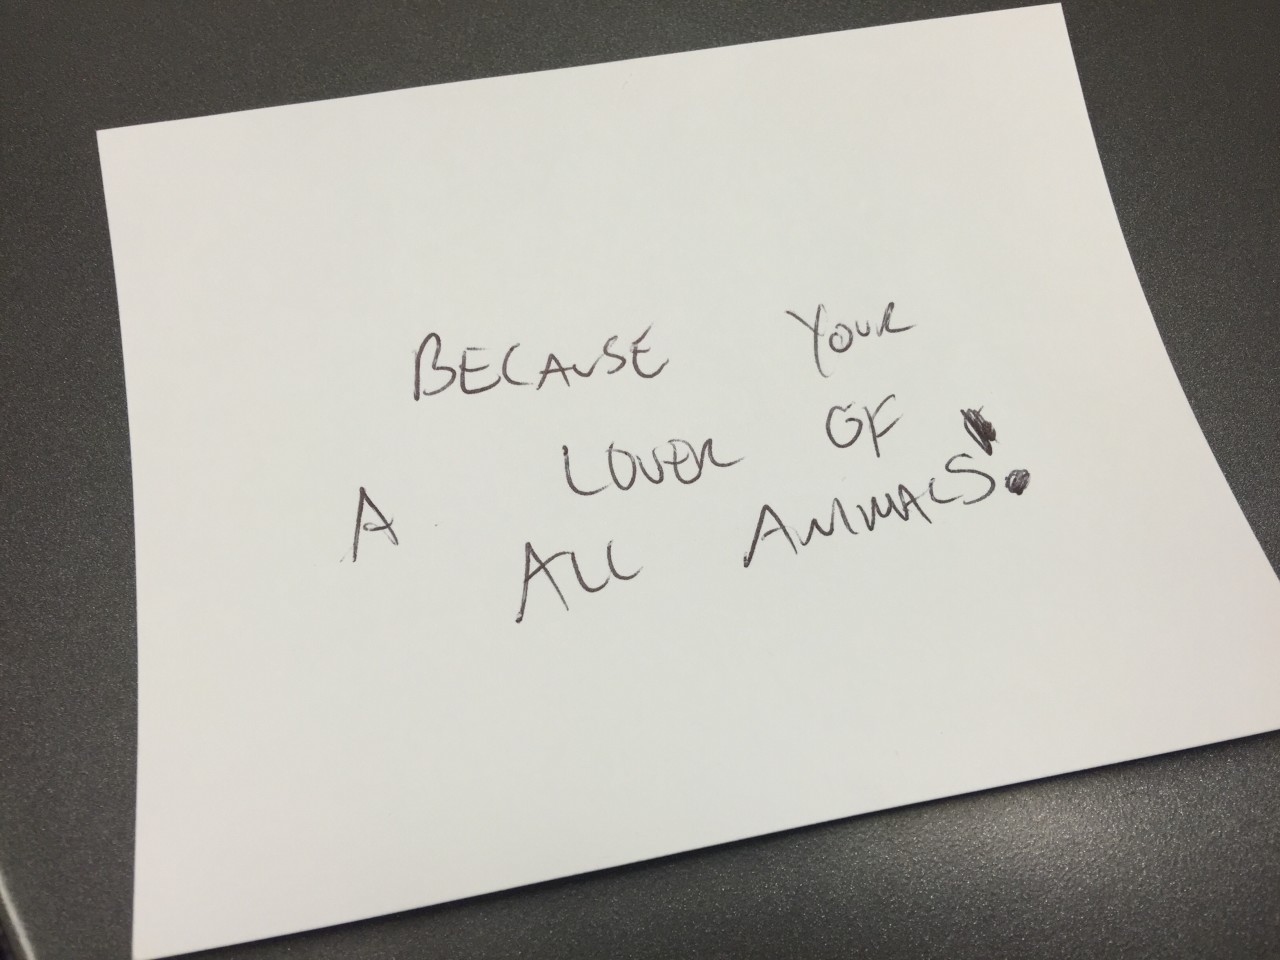 BECAUSE YOUR
A LOVER OF
ALL ANIMALS!